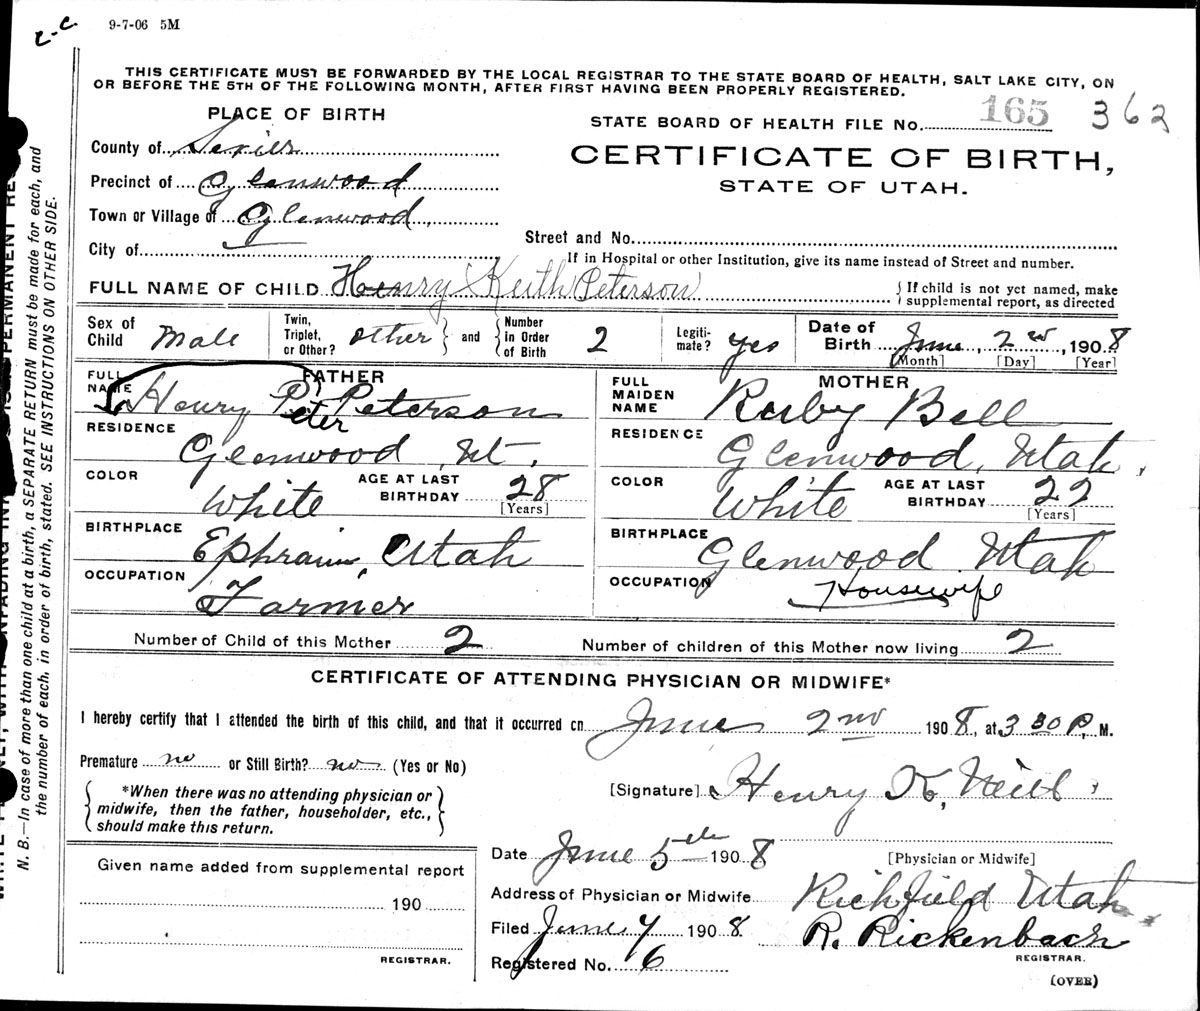 9-7-06 5M
THIS CERTIFICATE MUST BE FORWARDED BY THE LOCAL REGISTRAR TO THE STATE BOARD OF HEALTH, SALT LAKE CITY, ON
OR BEFORE THE 5TH OF THE FOLLOWING MONTH, AFTER FIRST HAVING BEEN PROPERLY REGISTERED.
PLACE OF BIRTH
STATE BOARD OF HEALTH FILE No. 165 362
County of Sevier
CERTIFICATE OF BIRTH,
Precinct of Glenwood
STATE OF UTAH.
Town or Village of Glenwood,
Street and No.
City of
If in Hospital or other Institution, give its name instead of Street and number.
FULL NAME OF CHILD Henry Keith Peterson
If child is not yet named, make
supplemental report, as directed
Sex of Child Male
Twin, Triplet, or Other? other and Number in Order of Birth 2
Legiti-mate? yes
Date of Birth June, 2nd, 1908
[Month] [Day] [Year]
FATHER
FULL NAME Henry Peter Peterson
RESIDENCE
Glenwood, Ut.
COLOR White AGE AT LAST BIRTHDAY 28
[Years]
BIRTHPLACE
Ephraim, Utah
OCCUPATION
Farmer
MOTHER
FULL MAIDEN NAME Ruby Bell
RESIDENCE
Glenwood, Utah.
COLOR White AGE AT LAST BIRTHDAY 22
[Years]
BIRTHPLACE
Glenwood Utah
OCCUPATION
Housewife
Number of Child of this Mother 2 Number of children of this Mother now living 2
CERTIFICATE OF ATTENDING PHYSICIAN OR MIDWIFE*
I hereby certify that I attended the birth of this child, and that it occurred on June 2nd 1908, at 3 30 P. M.
Premature no or Still Birth? no (Yes or No)
*When there was no attending physician or
midwife, then the father, householder, etc.,
should make this return.
[Signature] Henry K. Neill
[Physician or Midwife]
Date June 5th 1908
Address of Physician or Midwife Richfield Utah
Filed June 7 1908 R. Rickenbach
REGISTRAR.
Registered No. 6
(OVER)
Given name added from supplemental report
190
REGISTRAR.
N. B.—In case of more than one child at a birth, a SEPARATE RETURN must be made for each, and
the number of each, in order of birth, stated. SEE INSTRUCTIONS ON OTHER SIDE.